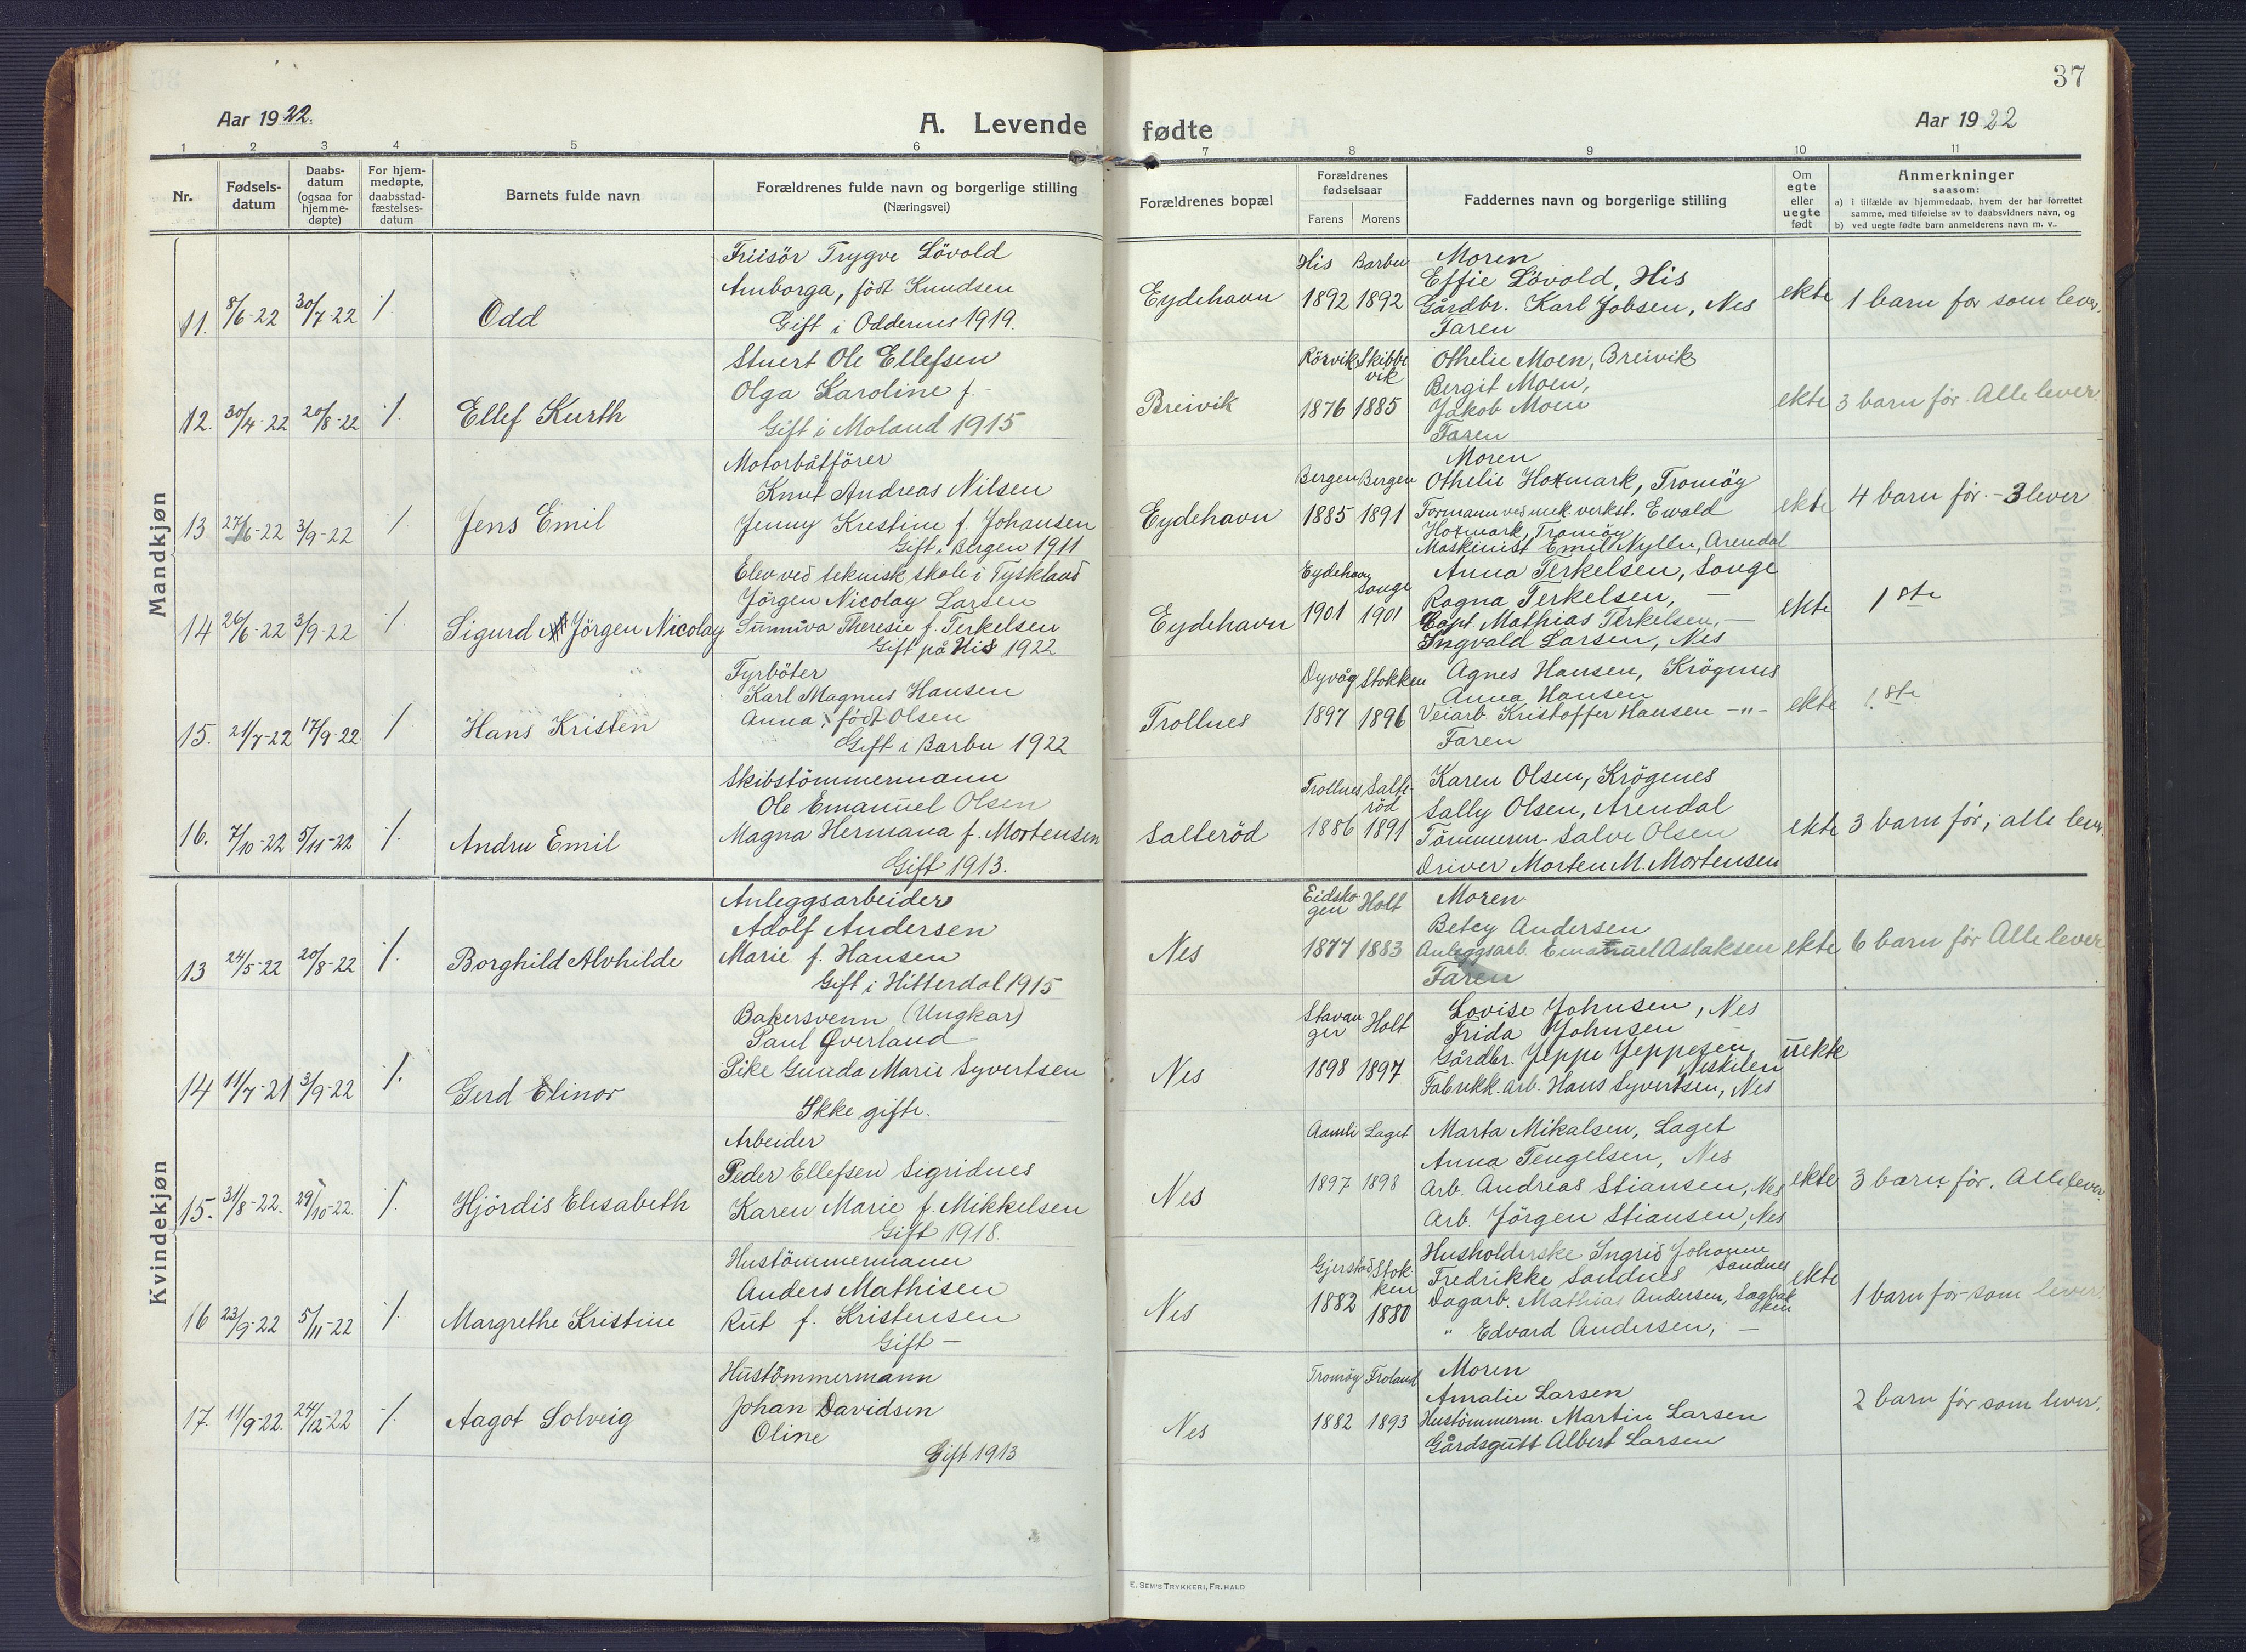 37
Aar 1922.
A. Levende
fødte
Aar 1922
1 2 3 4 5 6
7 8 9 10 11
Nr.
Fødsels-
datum
Daabs-
datum
(ogsaa for
hjemme-
døpte)
For hjem-
medøpte,
daabsstad-
fæstelses-
datum
Barnets fulde navn
Forældrenes fulde navn og borgerlige stilling
(Næringsvei)
Forældrenes bopæl
Forældrenes
fødselsaar
Farens Morens
Faddernes navn og borgerlige stilling
Om
egte
eller
uegte
født
Anmerkninger
saasom:
a) i tilfælde av hjemmedaab, hvem der har forrettet
samme, med tilføielse av to daabsvidners navn, og
b) ved uegte fødte barn anmelderens navn m. v..
Mandkjøn
11. 8/6-22 30/7-22 %
Odd
Friisör Trygve Lövold
Amborga, födt Knudsen
Gift i Oddernes 1919.
Eydehavn
His Barbu
1892 1892
Moren
Effie Lövold, His
Gårdbr. Karl Jobsen, Nes
Faren
ekte
1 barn før som lever.
12. 30/4-22 20/8-22 %
Ellef Kurth
Stuert Ole Ellefsen
Olga Karoline f. -
Gift i Moland 1915
Breivik
Rörvik Skibbe
vik
1876 1885
Othelie Moen, Breivik
Bergit Moen,
Jakob Moen
Faren
ekte
3 barn för. Alle lever.
13 27/6-22 3/9-22 %
Jens Emil
Motorbåtförer
Knut Andreas Nilsen
Jenny Krestine f. Johansen
Gift i Bergen 1911
Eydehavn
Bergen Bergen
1885 1891
Moren
Othelie Hoxmark, Tromöy
Formann ved mek. verkst. Ewald
Hoxmark, Tromöy
Maskinist Emil Nylln, Arendal
ekte
4 barn för. - 3 lever
14 26/6-22 3/9-22 %
Sigurd Jörgen Nicolay
Elev ved teknisk skole i Tyskland
Jörgen Nicolay Larsen
Sunniva Theresie f. Terkelsen
Gift på His 1922
Eydehavn
Eydehavn Songe
1901 1901
Anna Terkelsen, Songe
Ragna Terkelsen, —
Capt. Mathias Terkelsen, —
Ingvald Larsen, Nes
ekte
1ste
15. 21/7-22 17/9-22 %
Hans Kristen
Fyrböter
Karl Magnus Hansen
Anna, födt Olsen
Gift i Barbu 1922
Trollnes
Dyvåg Stokken
1897 1896
Agnes Hansen, Krögenes
Anna Hansen
Veiarb. Kristoffer Hansen -"-
Faren
ekte
1.ste
16. 7/10-22 5/11-22 %
Andru Emil
Skibstömmermann
Ole Emanuel Olsen
Magna Hermana f. Mortensen
Gift 1913.
Salteröd
Trollnes Salte-
röd
1886 1891
Karen Olsen, Krögenes
Sally Olsen, Arendal
Tömmerm. Salve Olsen
Driver Morten M. Mortensen
ekte
3 barn för, alle lever.
Kvindekjøn
13 24/5-22 20/8-22 %
Borghild Alvhilde
Anleggsarbeider
Adolf Andersen
Marie f. Hansen
Gift i Hitterdal 1915
Nes
Eidsko-
gen Holt
1877 1883
Moren
Betcy Andersen
Anleggsarb. Emanuel Aslaksen
Faren
ekte
6 barn för Alle lever.
14 11/7-21 3/9-22 %
Gerd Elinor
Bakersvenn (Ungkar)
Paul Øverland
Pike Gunda Marie Syvertsen
Ikke gifte.
Nes
Stavan
ger Holt
1898 1897
Lovise Johnsen, Nes
Frida Johnsen —
Gårdbr. Jeppe Jeppesen
Neskilen
Fabrikk. arb. Hans Syvertsen, Nes
uekte
15. 31/8-22. 29/10-22. %
Hjördis Elisabeth
Arbeider
Peder Ellefsen Sigridnes
Karen Marie f. Mikkelsen
Gift 1918.
Nes
Aamli Laget
1897 1898
Marta Mikalsen, Laget
Anna Tengelsen, Nes
Arb. Andreas Stiansen, Nes
Arb. Jörgen Stiansen, Nes
ekte
3 barn för. Alle lever.
16 23/9-22 5/11-22 %
Margrethe Kristine
Hustömmermann
Anders Mathisen
Rut f. Kristensen
Gift —
Nes
Gjerstad Stok
ken
1882 1880
Husholderske Ingrid Johanne
Sandnes
Fredrikke Sandnes
Dagarb. Mathias Andersen, Sagbak
ken
" Edvard Andersen, —
ekte
1 barn för som lever.
17. 11/9-22. 24/12-22 %
Aagot Solveig
Hustömmermann
Johan Davidsen
Oline
Gift 1913
Nes
Tromöy Froland
1882 1893
Moren
Amalie Larsen
Hustömmerm. Martin Larsen
Gårdsgutt Albert Larsen
2 barn för som lever.
E. SEM'S TRYKKERI, FR.HALD